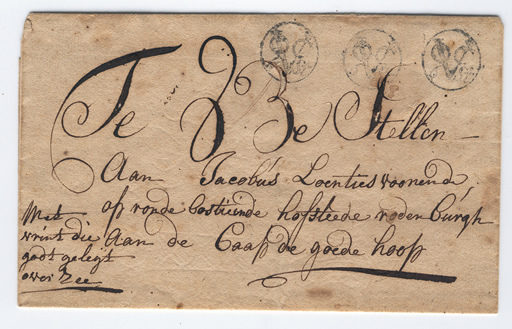 Te Be Stellen
Aan Jacobus Loenties woonende
op ronde bostiende hofsteede roden burgh
Aan de Caap de goede hoop
Met
vrint die
godt geleyt
over Zee